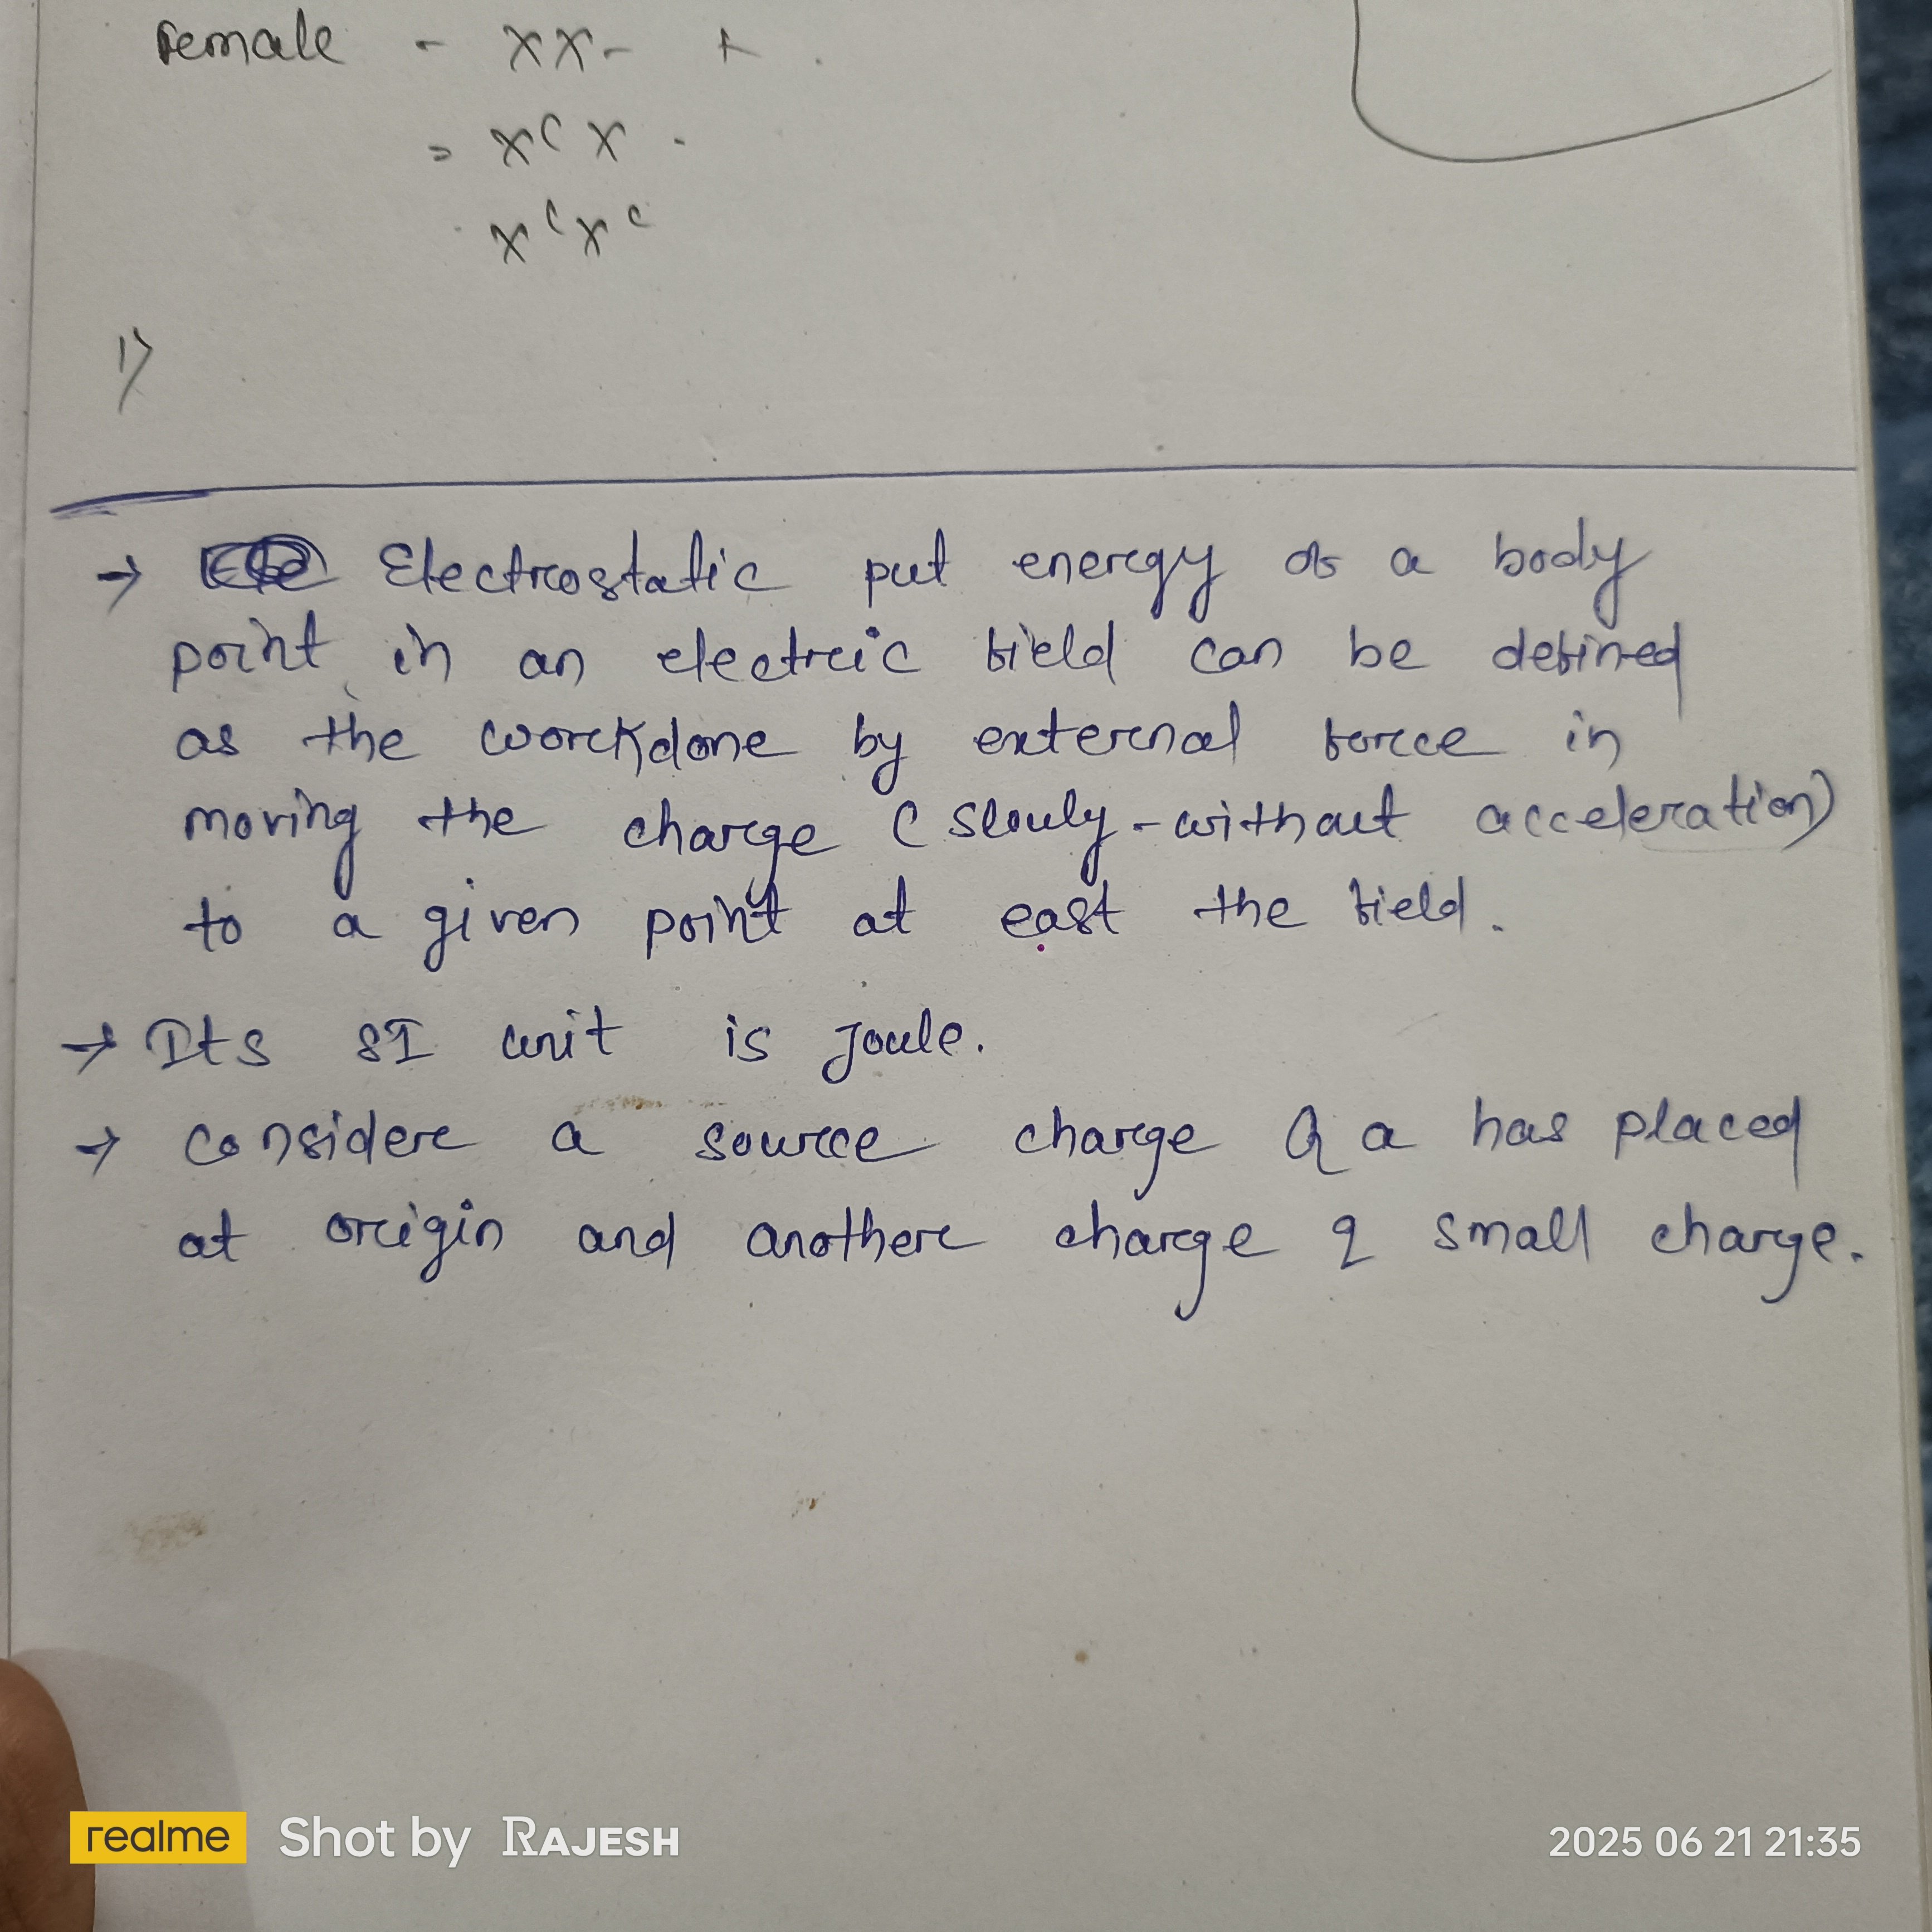 Female - XX - +.
= X^c X.
X^c X^c
1)
→ Electrostatic put energy of a body
point in an electric field can be defined
as the workdone by external force in
moving the charge ( slouly - without acceleration)
to a given point at east the field.
→ Its SI unit is Joule.
→ Consider a source charge Q a has placed
at origin and another charge q small charge.
realme Shot by RAJESH
2025 06 21 21:35